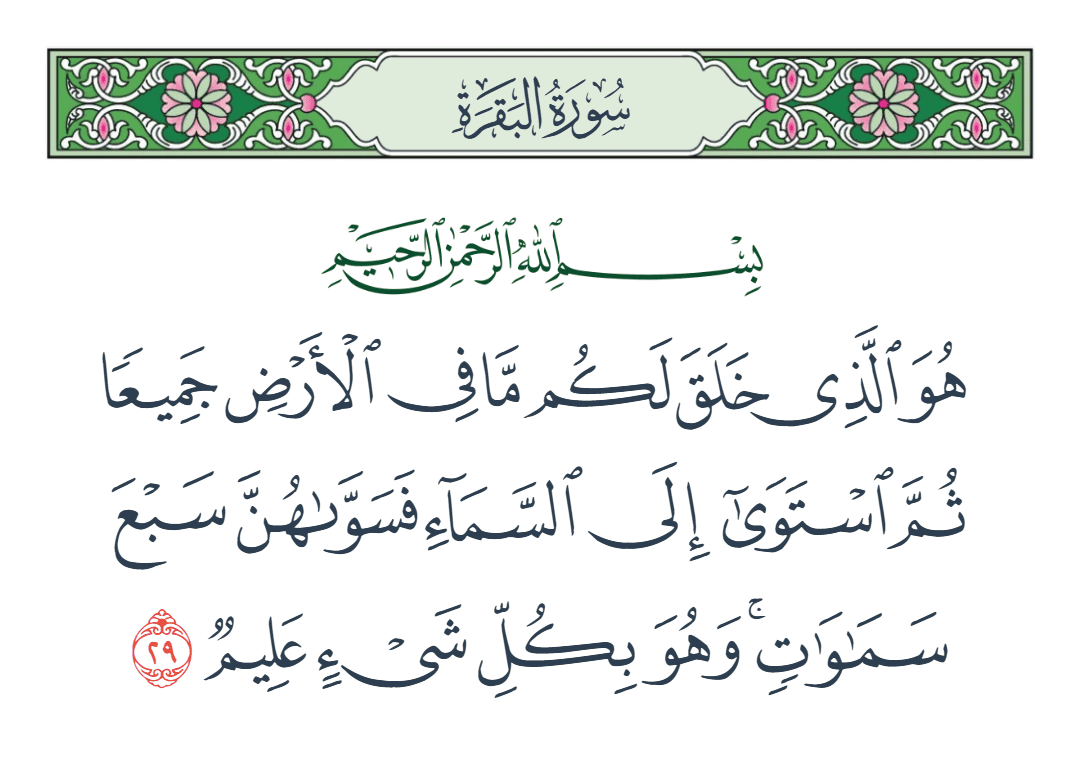 سُورَةُ البَقَرَةِ
بِسْمِ ٱللَّهِ ٱلرَّحْمَٰنِ ٱلرَّحِيمِ
هُوَ ٱلَّذِى خَلَقَ لَكُم مَّا فِى ٱلْأَرْضِ جَمِيعًا
ثُمَّ ٱسْتَوَىٰٓ إِلَى ٱلسَّمَآءِ فَسَوَّىٰهُنَّ سَبْعَ
سَمَٰوَٰتٍۚ وَهُوَ بِكُلِّ شَىْءٍ عَلِيمٌ ٢٩